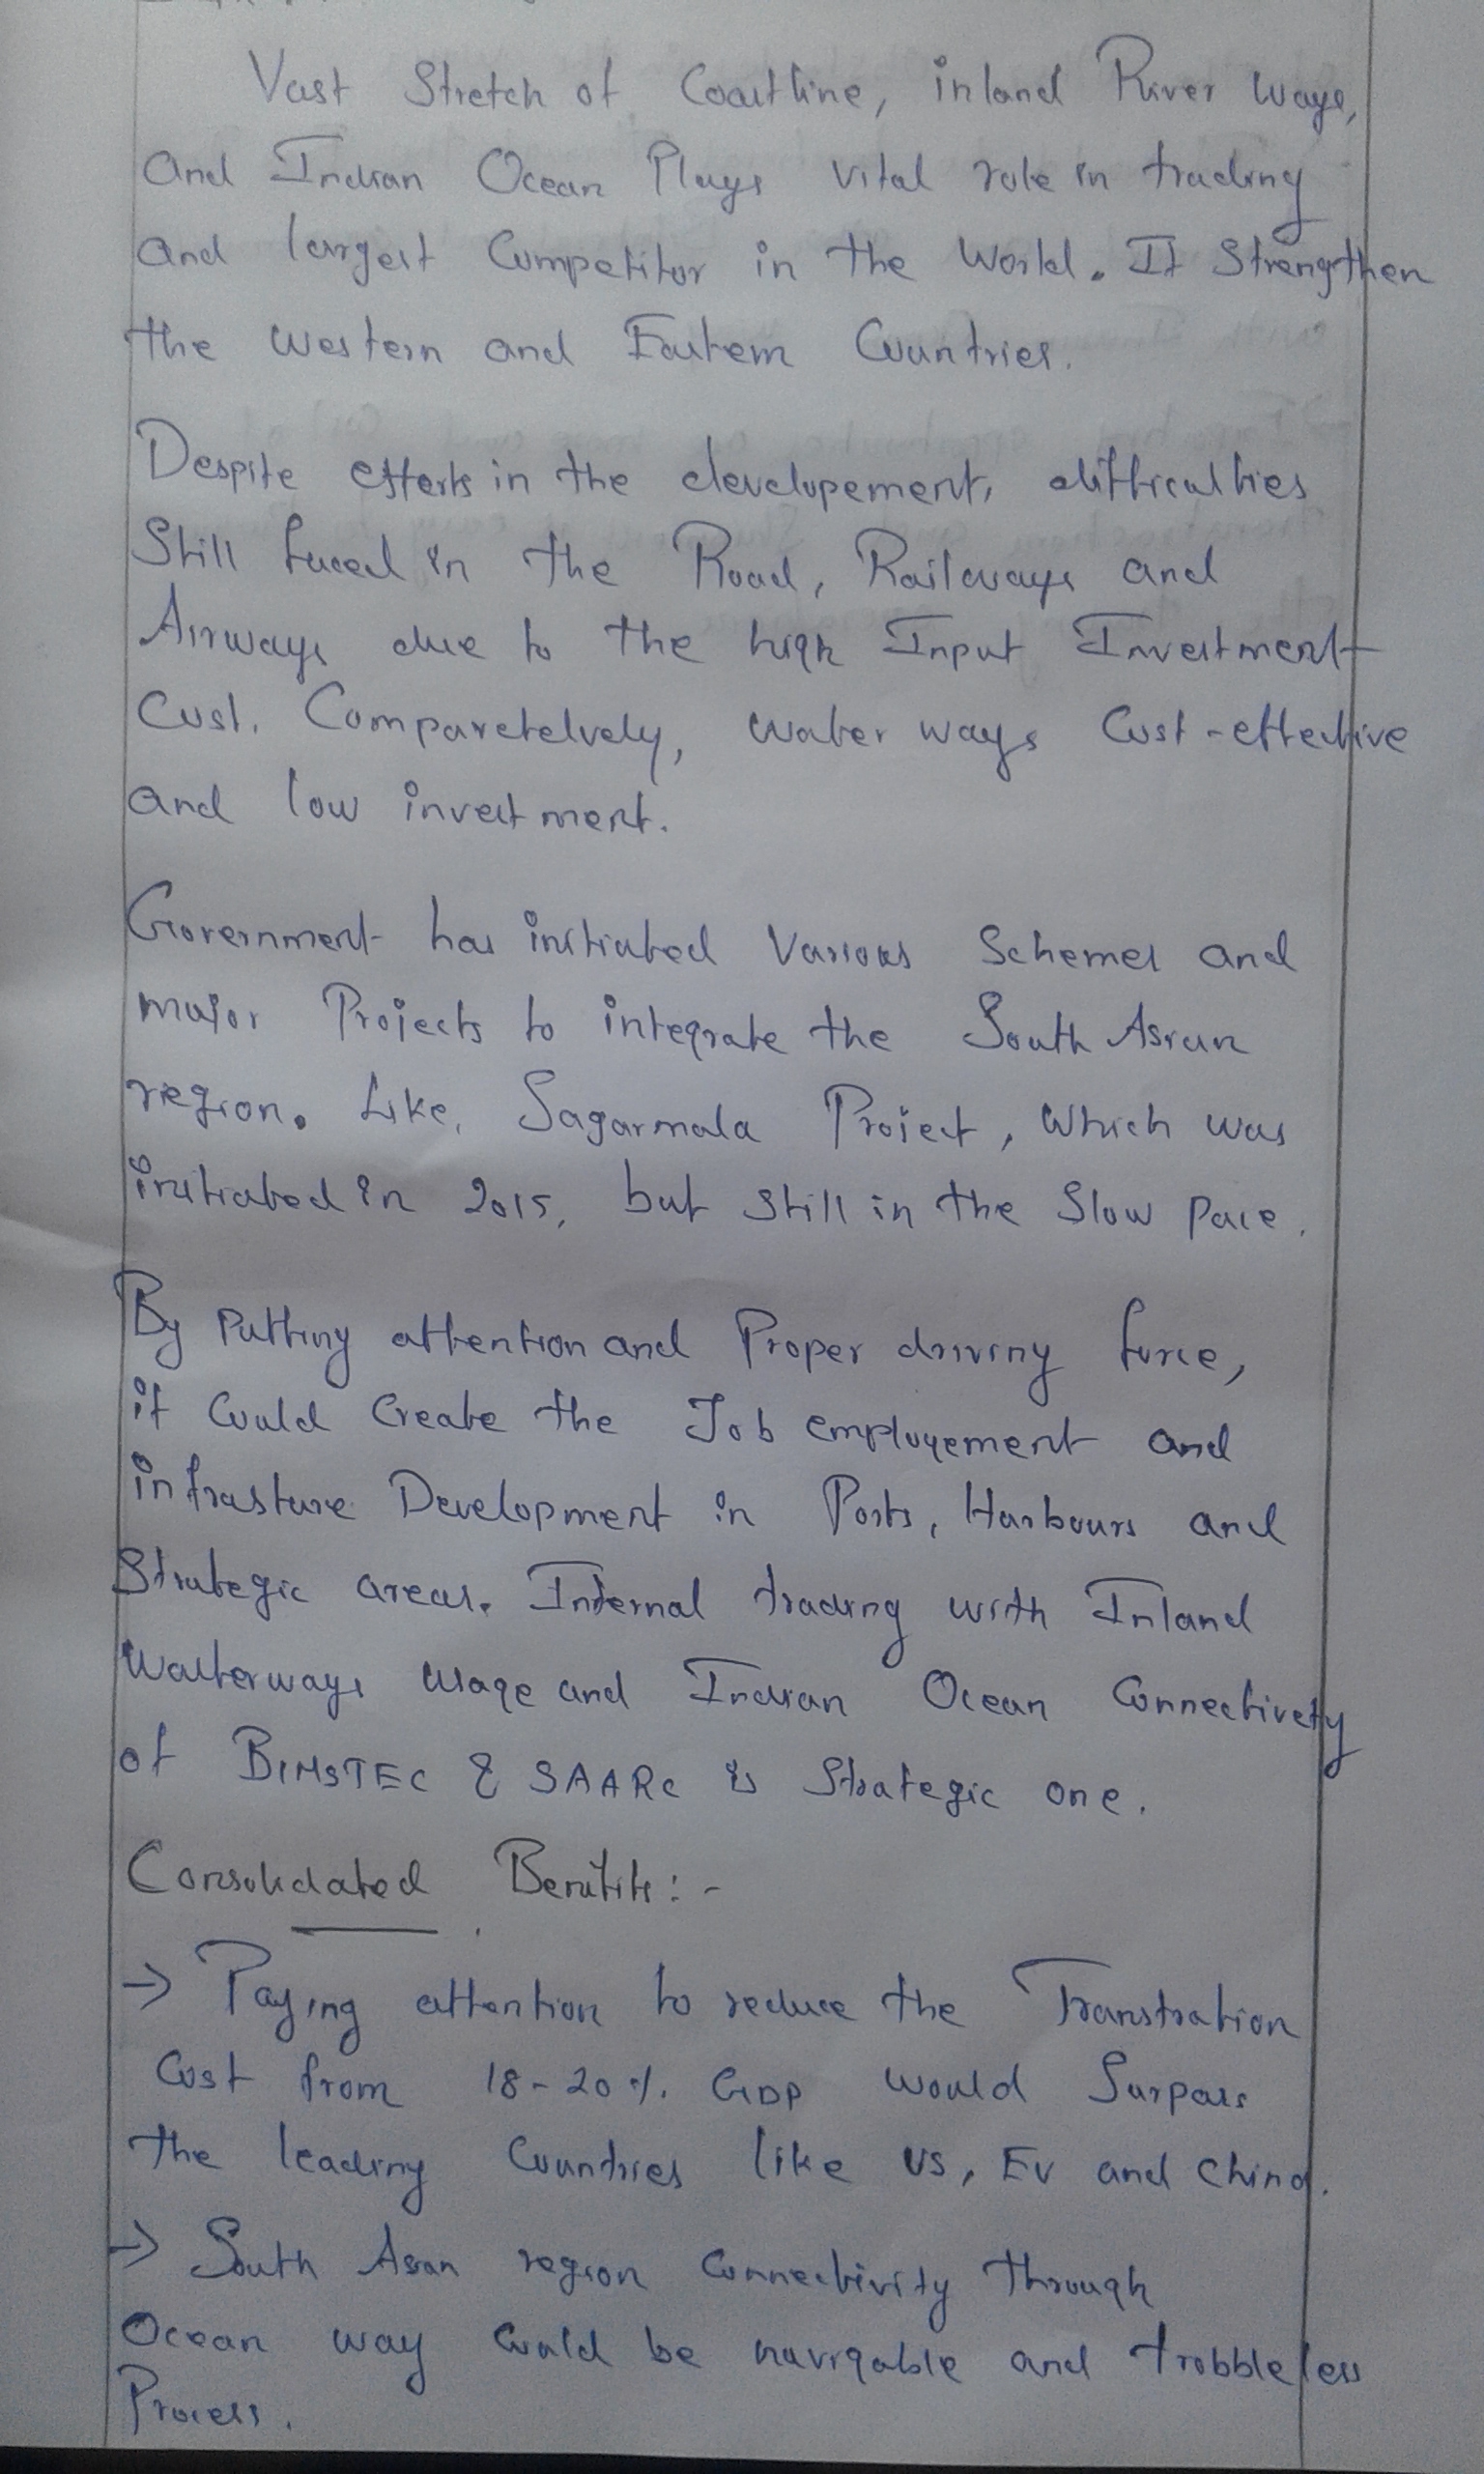 Vast Stretch of Coastline, inland River ways,
and Indian Ocean Plays vital role in trading
and largest Competitor in the World. It Strengthen
the western and Eastern Countries.
Despite efforts in the developement, difficulties
Still faced in the Road, Railways and
Airways due to the high Input Investment
Cost. Comparetelvely, water ways Cost-effective
and low investment.
Government has initiated Various Schemes and
major Projects to integrate the South Asian
region. Like, Sagarmala Project, which was
initiated in 2015, but still in the Slow pace.
By Putting attention and Proper driving force,
it Could Create the Job employement and
infrasture Development in Ports, Harbours and
Strategic areas. Internal trading with Inland
Waterways usage and Indian Ocean Connectivety
of BIMSTEC & SAARC is Strategic one.
Consolidated Benifits:-
→ Paying attention to reduce the Transtration
Cost from 18-20% GDP would Surpass
the leading Countries like US, EU and China.
→ South Asian region Connectivity through
Ocean way Could be navigable and trobbleless
Process.